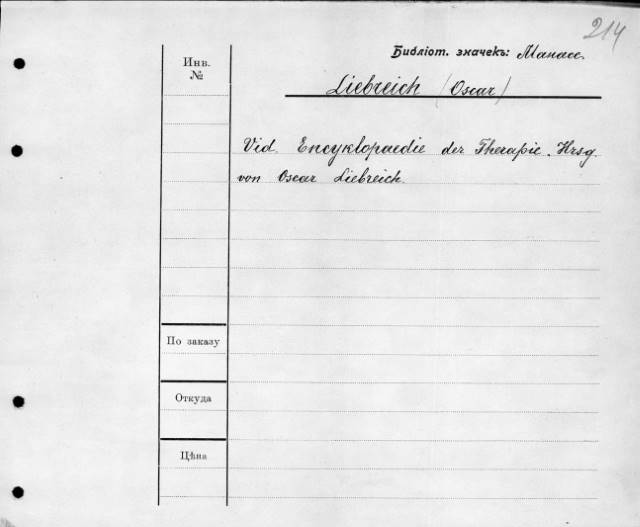 214
Библіот. значекъ: Манасс.
Инв.
№
Liebreich (Oscar)
Vid. Encyklopaedie der Therapie. Hrsg.
von Oscar Liebreich.
По заказу
Откуда
Цѣна